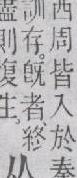 西周皆入於秦
訓存。既者終
則復生。从